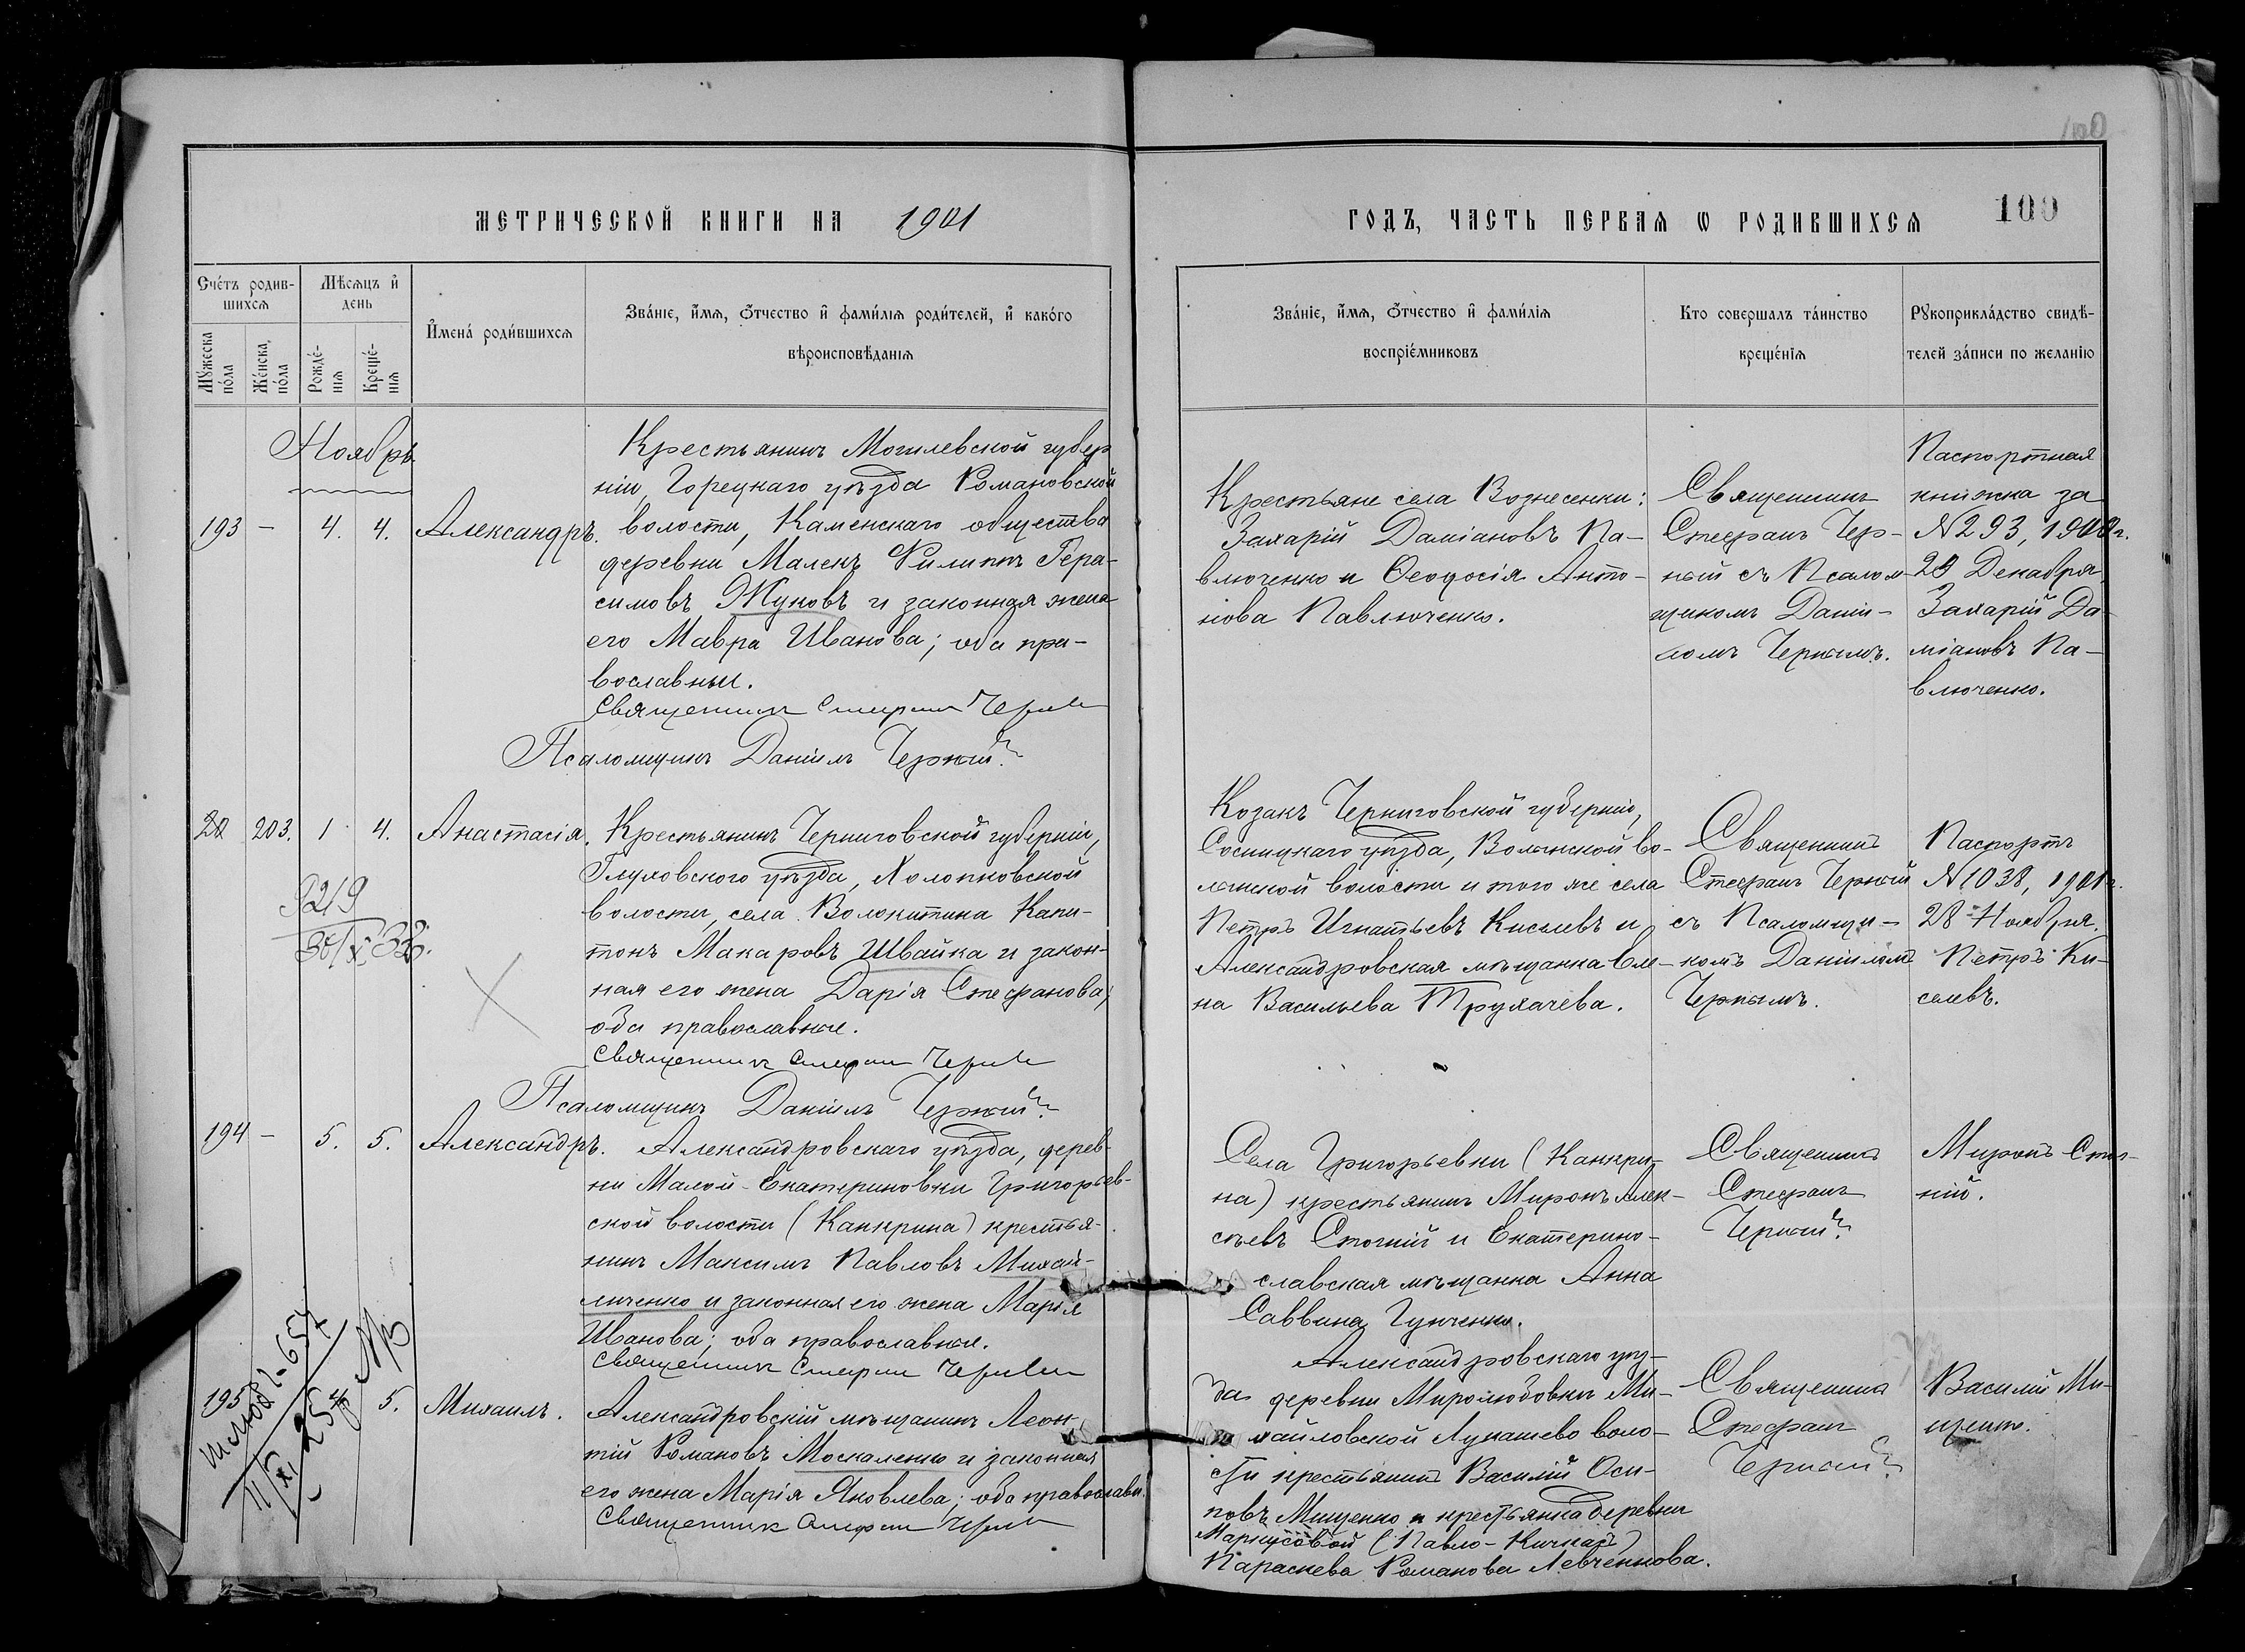 100
МЕТРИЧЕСКОЙ КНИГИ НА 1901
ГОДЪ, ЧАСТЬ ПЕРВАЯ Ѡ РОДИВШИХСЯ
100
Счетъ родив-
шихся
Мѣсяцъ и
день
Мужеска
пола
Женска
пола
Рожде-
нія
Креще-
нія
Имена родившихся
Званіе, имя, отчество и фамилія родителей, и какого
вѣроисповѣданія
Званіе, имя, отчество и фамилія
воспріемниковъ
Кто совершалъ таинство
крещенія
Рукоприкладство свидѣ-
телей записи по желанію
Ноябрь
193 — 4. 4.
Александръ.
Крестьянинъ Могилевской губер
ніи, Горецкаго уѣзда Романовской
волости, Каменскаго общества
деревни Малекъ Филиппъ Гера-
симовъ Жуковъ и законная жена
его Мавра Иванова; оба пра-
вославные.
Священникъ Стефанъ Черный
Псаломщикъ Даніилъ Черный
Крестьяне села Вознесенки:
Захарій Даміановъ Па-
влюченко и Ѳеодосія Анто-
нова Павлюченко.
Священникъ
Стефанъ Чер-
ный съ Псалом-
щикомъ Даніи-
ломъ Чернымъ.
Паспортная
книжка за
№ 293, 1900 г.
20 Декабря
Захарій Да-
міановъ Па-
влюченко.
203. 1 4.
Анастасія.
9219
Крестьянинъ Черниговской губерніи,
Глуховского уѣзда, Холопковской
волости, села Волокитина Капи-
тонъ Макаровъ Швайка и закон-
ная его жена Дарія Стефанова;
оба православные.
Священникъ Стефанъ Черный
Псаломщикъ Даніилъ Черный
Козакъ Черниговской губерніи,
Сосницкаго уѣзда, Волынской во-
лынской волости и того же села
Петръ Игнатьевъ Киселевъ и
Александровская мѣщанка Еле-
на Васильева Трухачева.
Священникъ
Стефанъ Черный
съ Псаломщи-
комъ Даніиломъ
Чернымъ.
Паспортъ
№ 1038, 1901 г.
28 Ноября.
Петръ Ки-
селевъ.
194 — 5. 5.
Александръ.
Александровскаго уѣзда, дерев-
ни Малой-Екатериновки Григорьев-
ской волости (Канкрина) крестья-
нинъ Максимъ Павловъ Михай-
личенко и законная его жена Марія
Иванова; оба православные.
Священникъ Стефанъ Черный
Села Григорьевки (Канкри-
на) крестьянинъ Миронъ Алек-
сѣевъ Стогній и Екатерино-
славская мѣщанка Анна
Саввина
Священникъ
Стефанъ
Черный
Миронъ Стог-
ній.
195 4 5.
Михаилъ.
Александровскій мѣщанинъ Леон-
тій Романовъ Москаленко и законная
его жена Марія Яковлева; оба православн.
Священникъ Стефанъ Черный
Александровскаго уѣз-
да деревни Миролюбовки Ми-
хайловской Лукашево воло-
сти крестьянинъ Василій Оси-
повъ Мищенко и крестьянка деревни
Маркусовой (Павло-Кичкасъ)
Параскева Романова Левченкова.
Священникъ
Стефанъ
Черный
Василій Ми-
щенко.